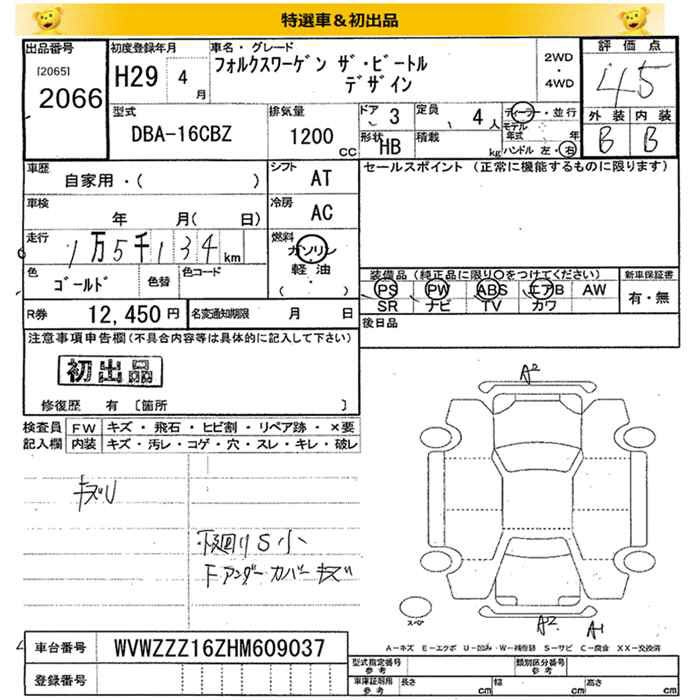 特選車＆初出品
出品番号
[2065]
2066
初度登録年月
H29 4 月
車名・グレード
フォルクスワーゲン ザ・ビートル
デザイン
2WD
・
4WD
評価点
4.5
外装 内装
B B
型式
DBA-16CBZ
排気量
1200 CC
ドア 3
形状 HB
定員 4 人
積載 kg
ディーラー・並行
モデル年式 年
ハンドル 左・右
車歴
自家用・( )
シフト AT
車検
年 月( 日)
冷房 AC
走行
1万5千134 km
燃料
ガソリン
・
軽油
( )
色
ゴールド
色替
色コード
R券 12,450円
名変通知期限 月 日
セールスポイント（正常に機能するものに限ります）
装備品（純正品に限り〇をつけてください）
PS PW ABS エアB AW
SR ナビ TV カワ
新車保証書
有・無
後日品
注意事項申告欄(不具合内容等は具体的に記入して下さい)
初出品
修復歴 有 〔箇所 〕
検査員記入欄
FW キズ・飛石・ヒビ割・リペア跡・×要
内装 キズ・汚レ・コゲ・穴・スレ・キレ・破レ
キズU
下廻りS小
Fアンダーカバーキズ
A2
A2
A1
スペア
A-キズ E-エクボ U-凹み W-補修跡 S-サビ C-腐食 XX-交換済
車台番号 WVWZZZ16ZHM609037
登録番号
型式指定番号 参考
類別区分番号 参考
車庫証明用 参考
長さ cm
幅 cm
高さ cm